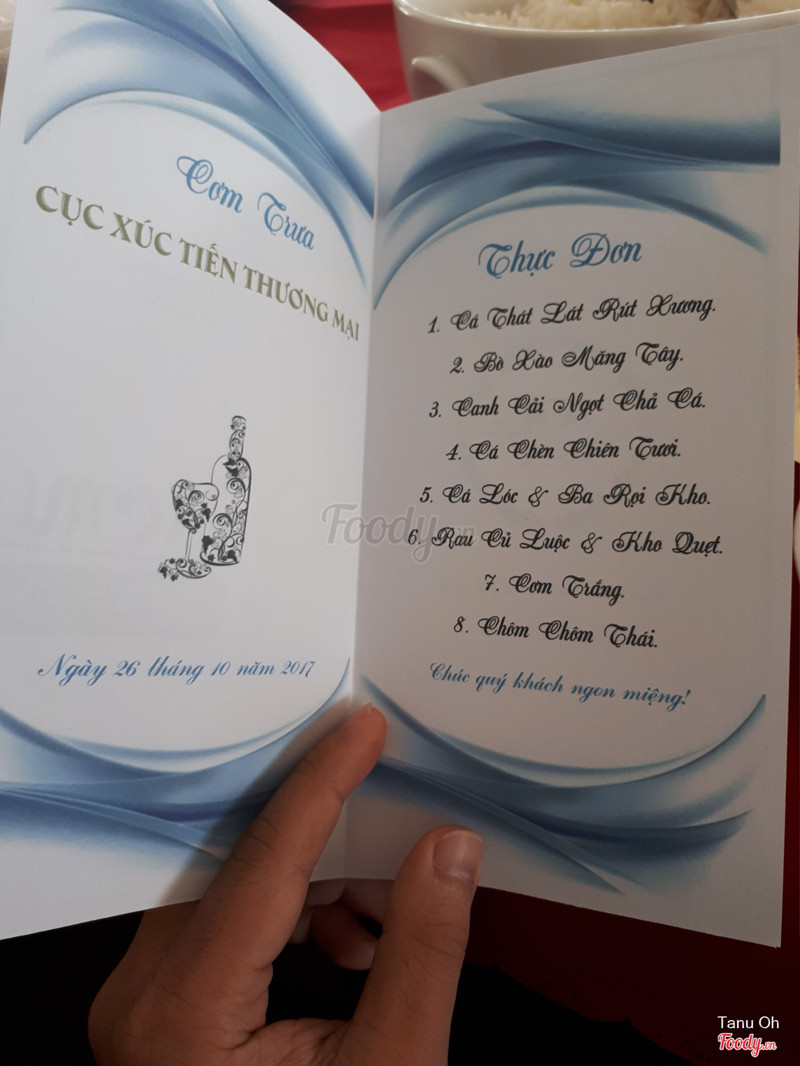 Cơm Trưa
CỤC XÚC TIẾN THƯƠNG MẠI
Ngày 26 tháng 10 năm 2017
Thực Đơn
1. Cá Thát Lát Rút Xương.
2. Bò Xào Măng Tây.
3. Canh Cải Ngọt Chả Cá.
4. Cá Chèn Chiên Tươi.
5. Cá Lóc & Ba Rọi Kho.
6. Rau Củ Luộc & Kho Quẹt.
7. Cơm Trắng.
8. Chôm Chôm Thái.
Chúc quý khách ngon miệng!
Foody.vn
Tanu Oh
Foody.vn